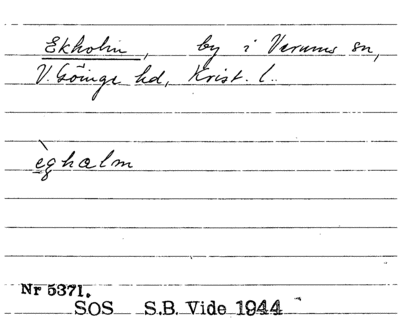 Ekholm, by i Verums sn,
V. Göinge hd, Krist. l.
èghalm
Nr 5371.
SOS S.B. Vide 1944